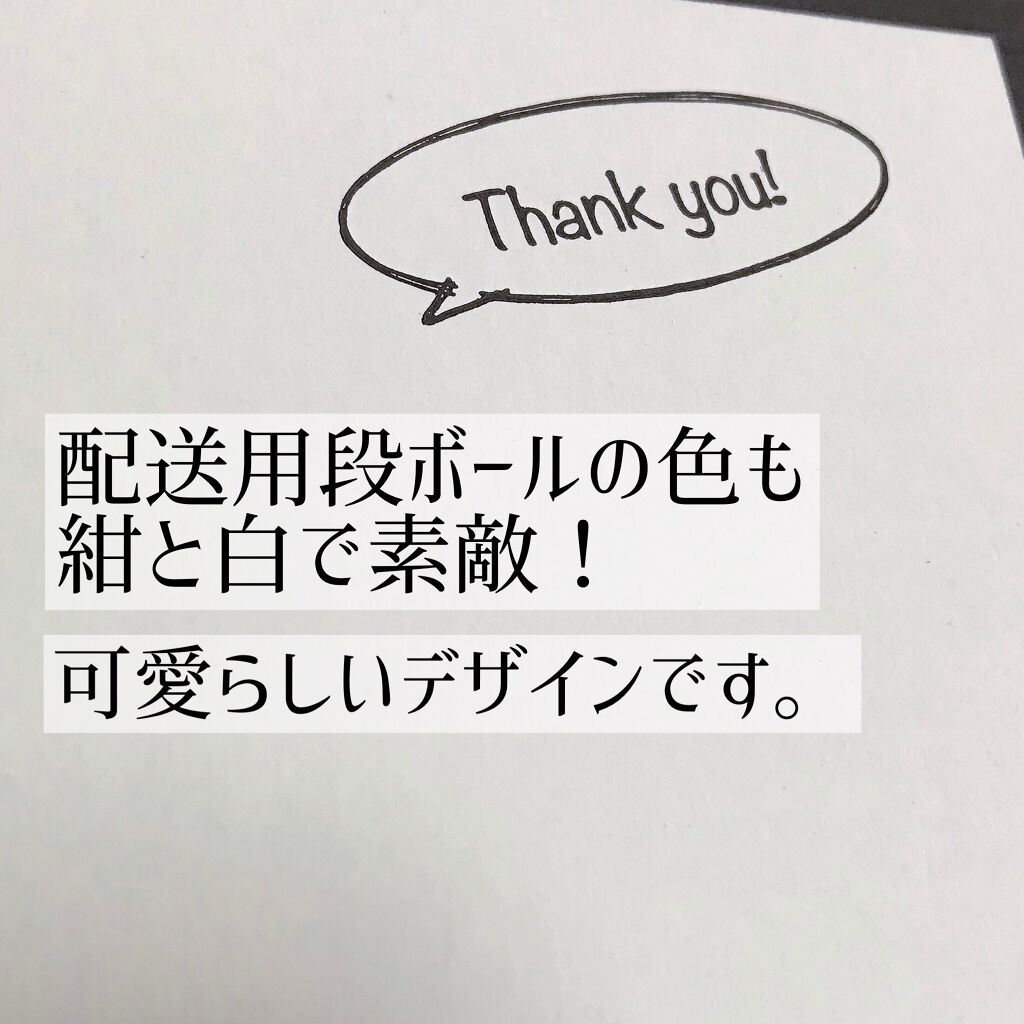 Thank you!
配送用段ボールの色も
紺と白で素敵！
可愛らしいデザインです。